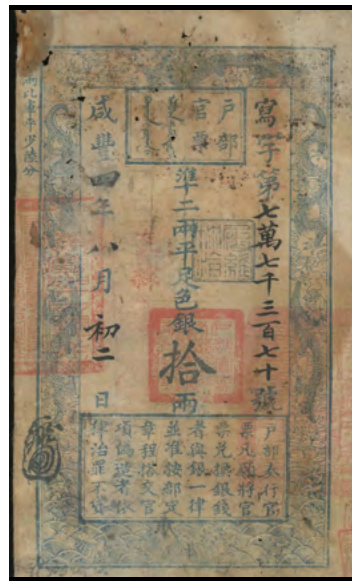 戶部
官票
寫字第七萬七千三百七十號
準二兩平足色銀拾兩
咸豐四年八月初二日
戶部奏行官
票凡願將官
票兌換銀錢
者與銀一律
並准按部定
章程搭交官
項偽造者依
律治罪不貸